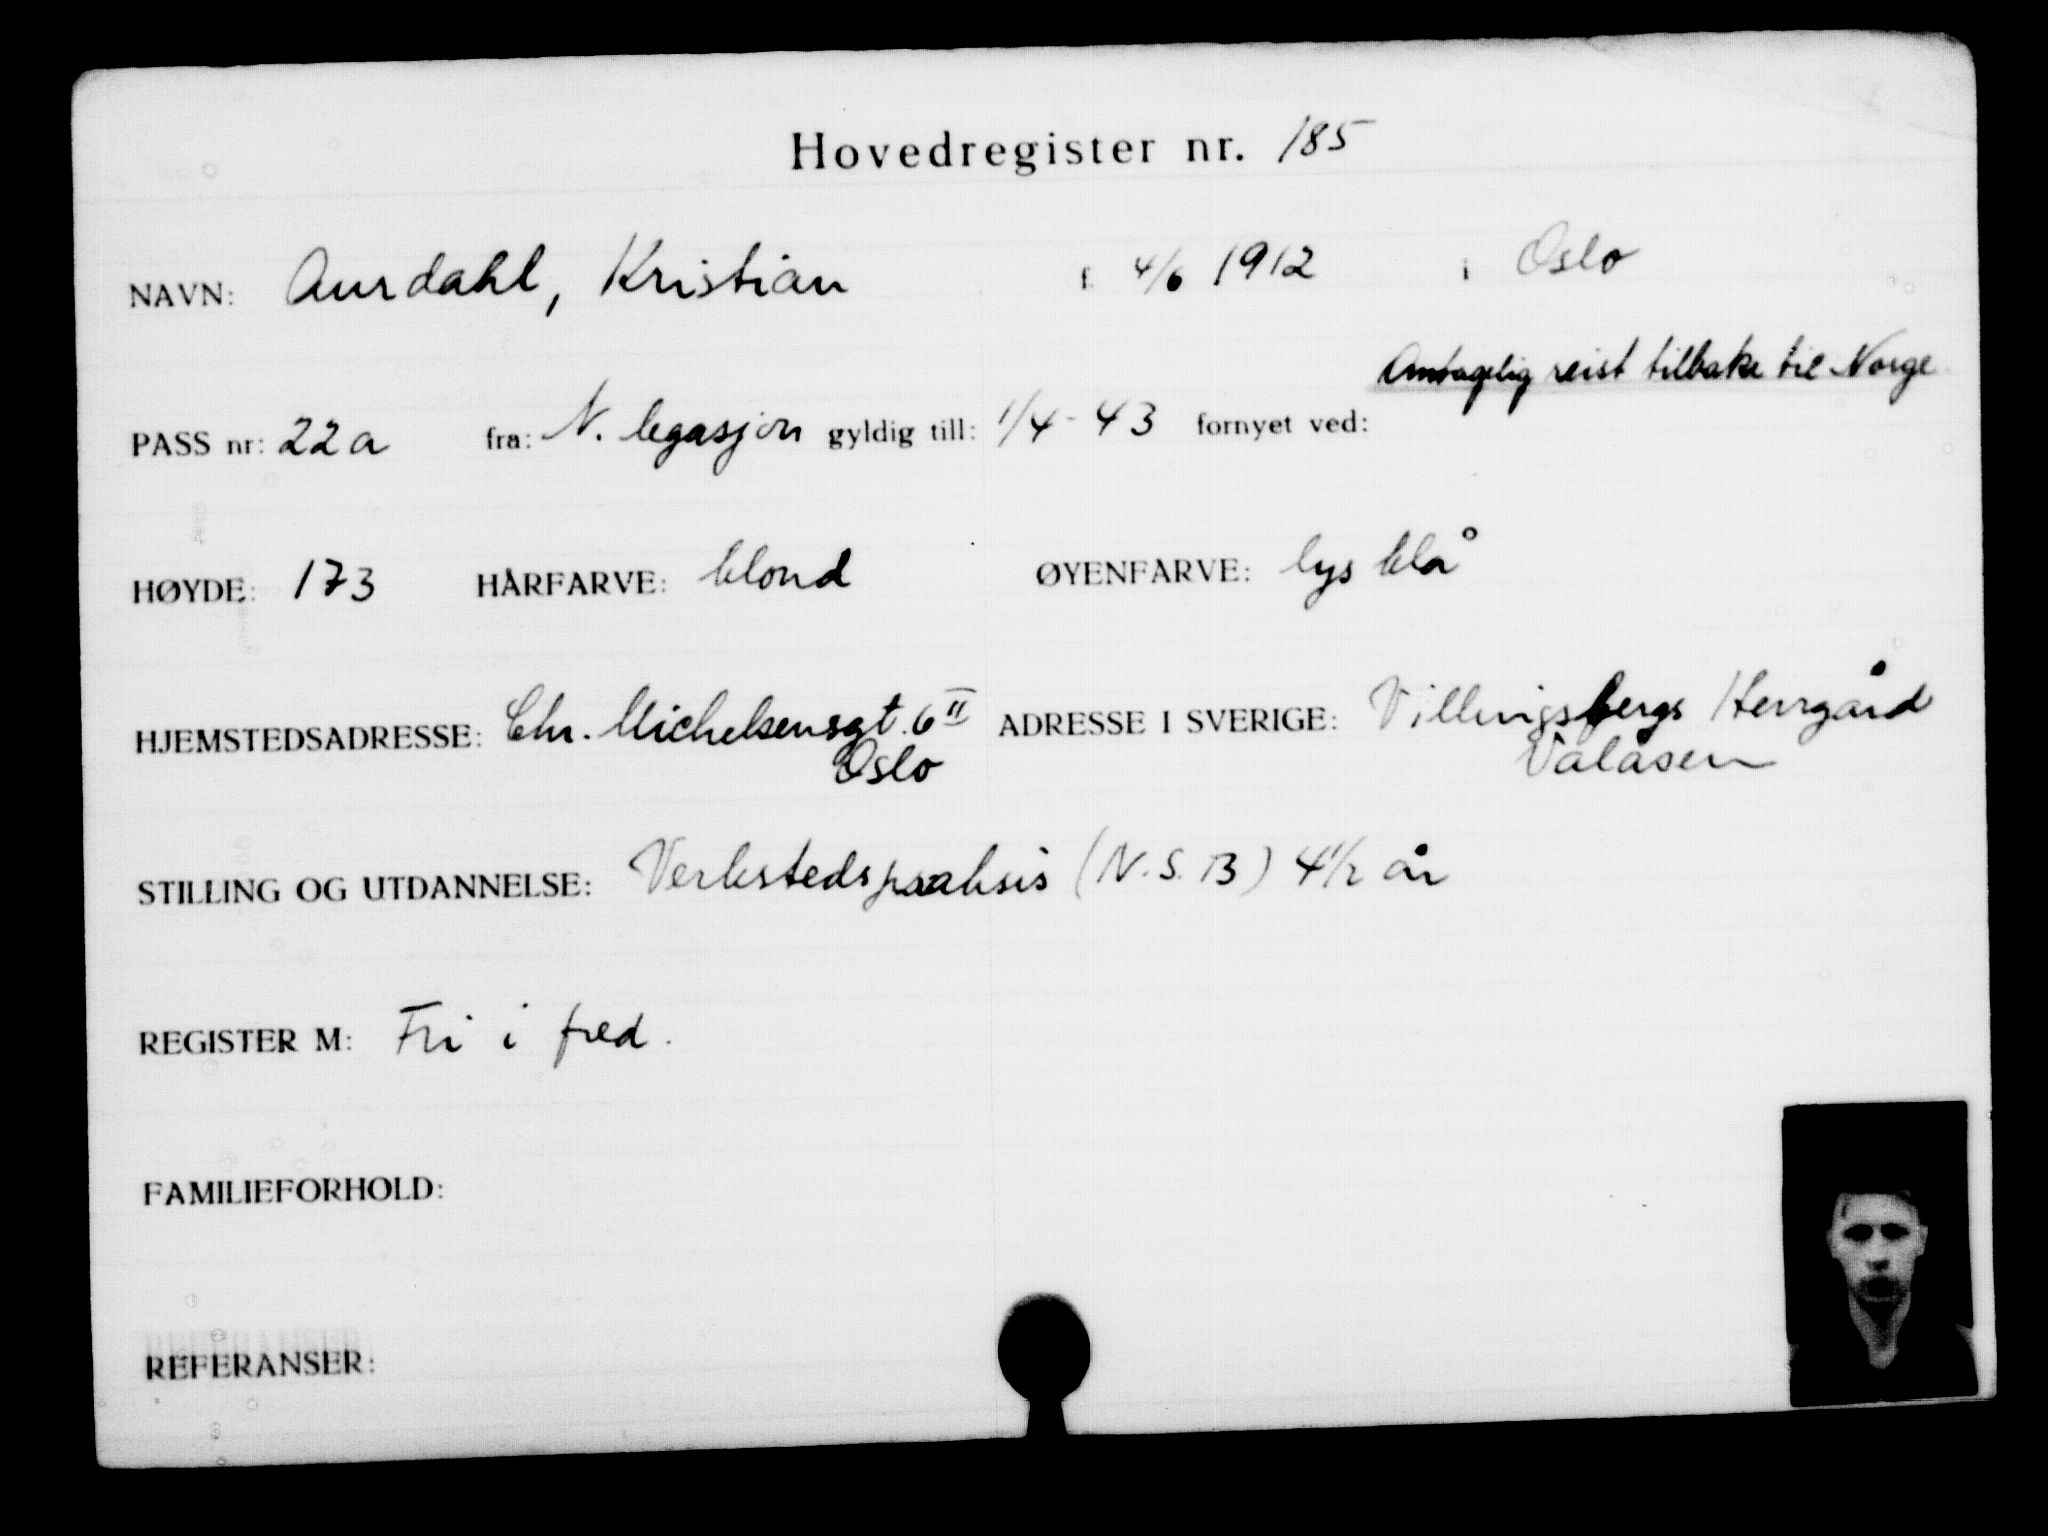 Hovedregister nr. 185
NAVN: Aurdahl, Kristian f. 4/6 1912 i Oslo
Antagelig reist tilbake til Norge
PASS nr: 22a fra: N. legasjon gyldig till: 1/4-43 fornyet ved:
HØYDE: 173 HÅRFARVE: blond ØYENFARVE: lys blå
HJEMSTEDSADRESSE: Chr. Michelsensgt. 6 II ADRESSE I SVERIGE: Villingsbergs Herrgård
Oslo Valåsen
STILLING OG UTDANNELSE: Verkstedspraksis (N.S.B) 4 1/2 år
REGISTER M: Fri i fred.
FAMILIEFORHOLD:
REFERANSER: